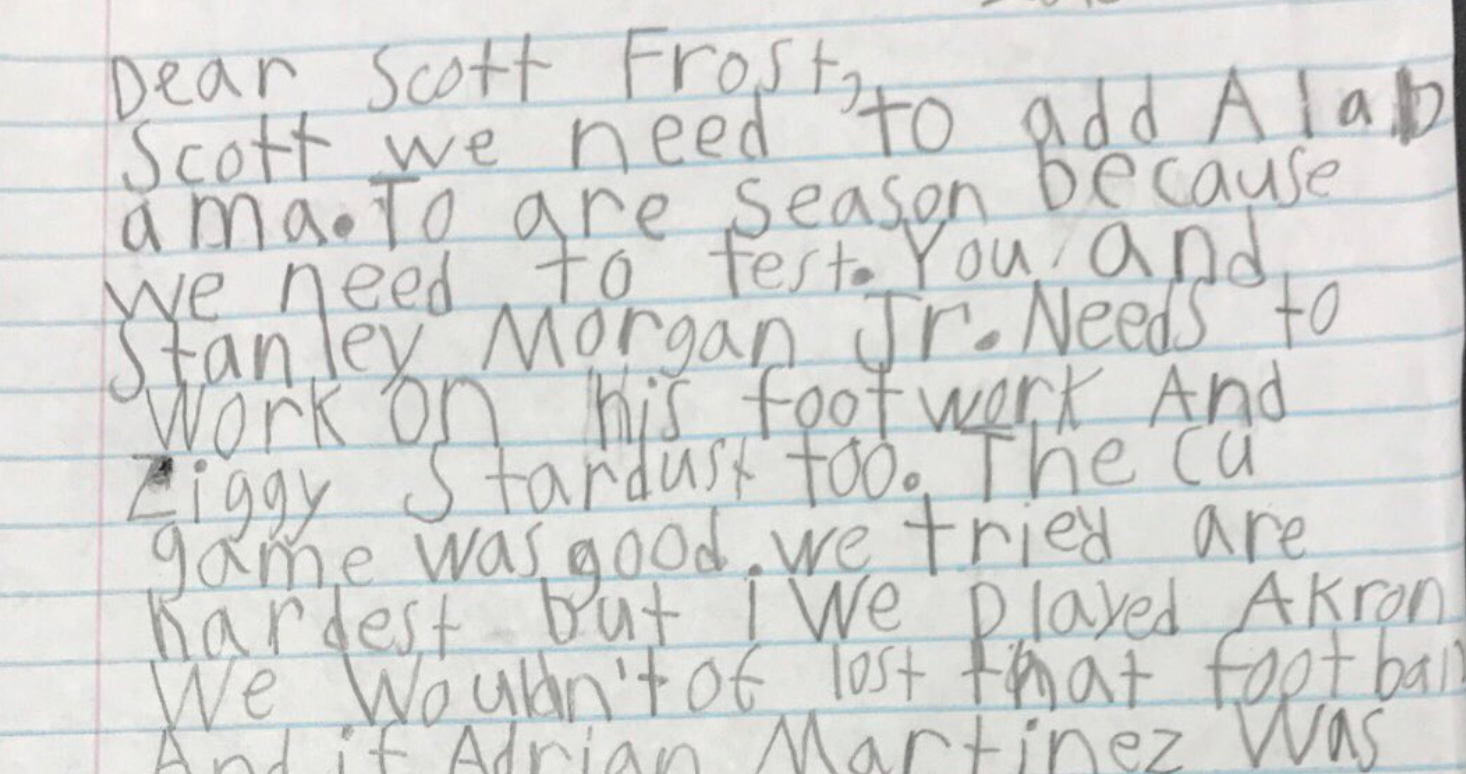 Dear Scott Frost,
Scott we need to add Alab
ama. To are season because
we need to test. You and
Stanley Morgan Jr. Needs to
Work on his footwork And
Ziggy Stardust too. The Cu
game was good. we tried are
hardest but i We played Akron
We Wouldn't of lost that football
And if Adrian Martinez Was